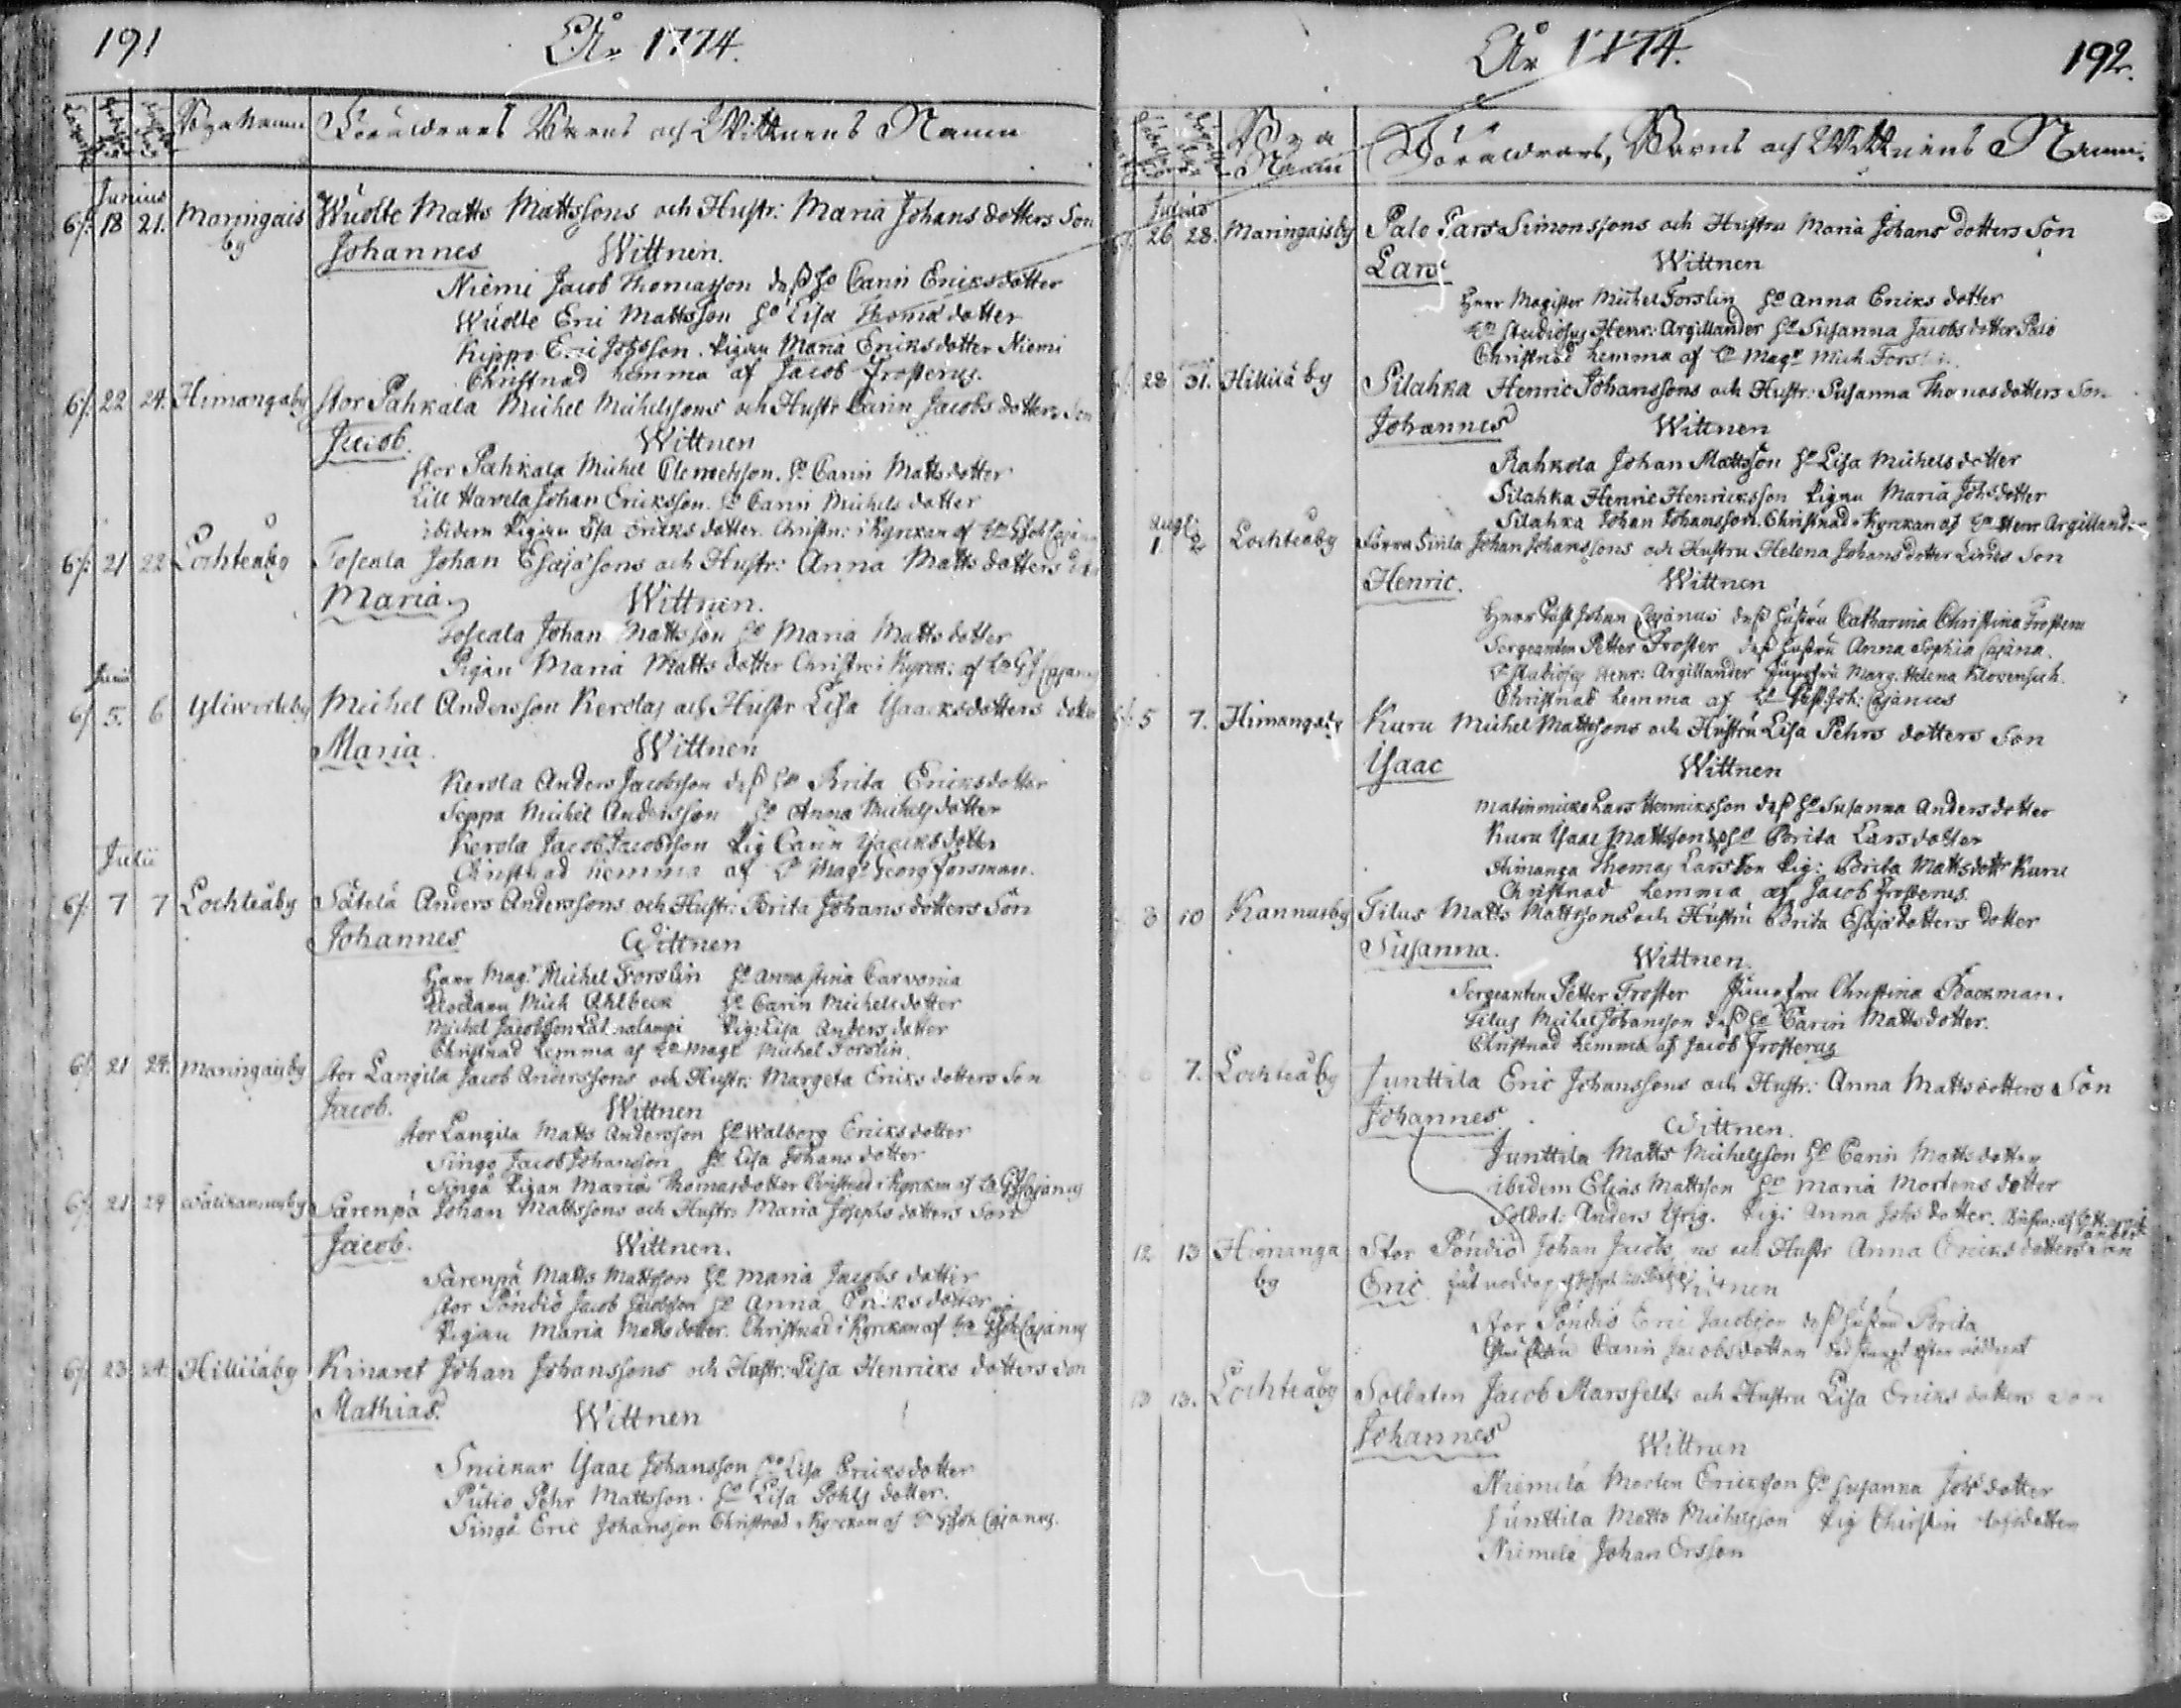 191
År 1774.
Bya Namn Föräldrars Barns och Wittnens Namn
Junius
6/: 18 21. Maringais Wuolte Matts Mattssons och Hustr: Maria Johans dotters Son
by Johannes Wittnen.
Niemi Jacob Thomasson deß Ho Carin Ericksdotter
Wuolte Eric Mattsson Ho Lisa Thomædotter
Kippo Eric Johsson. Pigan Maria Ericksdotter Niemi
Christnad hemma af Jacob Frosterus.
6/: 22 24. Himangaby Stor Pahkala Michel Michelssons och Hustr Carin Jacobs dotters Son
Jacob. Wittnen
Stor Pahkala Michel Clemetsson. Ho Carin Mattsdotter
Lill Havela Johan Ericksson. Ho Carin Michels dotter
ibidem Pigan Lisa Ericks dotter. Christn: i Kyrckan af
6/: 21 22 Lochteåby Toscala Johan Esajæsons och Hustr: Anna Matts dotters
Maria. Wittnen.
Toscala Johan Mattsson Ho Maria Matts dotter
Pigan Maria Matts dotter Christn: i Kyrck: af
Junii
6/ 5. 6 Yliwirteby Michel Andersson Kerolas och Hustr Lisa Ysaacksdotters dotter
Maria. Wittnen
Kerola Anders Jacobsson deß Ho Brita Ericksdotter
Seppa Michel Andersson Ho Anna Michels dotter
Kerola Jacob Jacobsson Pig Carin Ysaacksdotter
Christnad hemma af Hr Magr Georg Forsman.
Julii
6/ 7 7 Lochteåby Såtelä Anders Anderssons och Hustr: Brita Johans dotters Son
Johannes Wittnen
Herr Magr Michel Forslin Ho Anna Stina Carvonia
Klockaren Mich Ahlbeck Ho Carin Michelsdotter
Michel Jacobsson Pig: Lisa Anders dotter
Christnad hemma af Hr Magr Michel Forslin.
6/ 21 24. Maringaisby Stor Langila Jacob Anderssons och Hustr: Margeta Ericks dotters Son
Jacob. Wittnen
Stor Langila Matts Andersson Ho Walborg Ericksdotter
Singo Jacob Johansson Ho Lisa Johans dotter
Singå Pigan Maria Thomasdotter Christnad i Kyrckan af
6/ 21 24 Wälikannusby Sarenpä Johan Mattssons och Hustr: Maria Josephs dotters Son
Jacob. Wittnen.
Sarenpä Matts Mattsson Ho Maria Jacobs dotter
Stor Pöndiö Jacob Jacobsson Ho Anna Ericks dotter
Pigan Maria Matts dotter. Christnad i Kyrckan af Hr Joh Cajanus
6/ 23 24. Hilliläby Kinaret Johan Johanssons och Hustr: Lisa Henricks dotters Son
Mathias. Wittnen
Snickar Ysaac Johansson Ho Lisa Ericksdotter
Putio Pehr Mattsson. Ho Lisa Pohls dotter.
Singå Eric Johansson Christnad i Kyrckan af Joh Cajanus.
År 1774. 192.
Bya Namn Föräldrars, Barns och Wittnens Namn.
Julius
26 28. Maringaisby Palo Lars Simonssons och Hustru Maria Johans dotters Son
Lars Wittnen
Herr Magister Michel Forslin Ho Anna Ericks dotter
Hr Studiosus Henr: Argillander Ho Susanna Jacobs dotter Palo
Christnad hemma af Hr Magr Mich. Forslin.
28 31. Hilliläby Pilahka Henric Johanssons och Hustr: Susanna Thomasdotters Son
Johannes Wittnen
Rahkola Johan Mattsson Ho Lisa Michelsdotter
Silahka Henric Henricksson Pigan Maria Johsdotter
Silahka Johan Johansson. Christnad i Kyrckan af Hr Henr Argilland
Augl:
1 2 Lochteåby Johan Johanssons och Hustru Helena Johansdotter Linds Son
Henric. Wittnen
Herr Past Johan Cajanus deß Hustru Catharina Christina Frosteni
Sergeanten Petter Froster deß Hustru Anna Sophia Cajana.
Hr Studiosus Henr: Argillander Jungfru Marg: Helena
Christnad hemma af Hr Past: Joh: Cajanus
5 7. Himangaby Kuru Michel Mattssons och Hustru Lisa Pehrs dotters Son
Ysaac Wittnen
Lars Hennicksson deß Ho Susanna Andersdotter
Kuru Ysaac Mattsson deß Ho Brita Larsdotter
Himanga Thomas Larsson Pig: Brita Mattsdottr Kuru
Christnad hemma af Jacob Frosterus.
8 10 Kannusby Filus Matts Mattssons och Hustru Brita Esaiædotters dotter
Susanna. Wittnen.
Sergeanten Petter Froster Jungfru Christina Backman.
Filus Michel Johansson deß Ho Carin Mattsdotter.
Christnad hemma af Jacob Frosterus
6 7. Lochteåby Junttila Eric Johanssons och Hustr: Anna Mattsdotters Son
Johannes. Wittnen.
Junttila Matts Michelsson Ho Carin Mattsdotter
ibidem Elias Mattsson Ho Maria Mortens dotter
Soldat: Anders Yrig. Pig: Anna Johs dotter.
12 13 Himanga Stor Pöndiö Johan Jacobs och Hustr Anna Ericks dotters Son
by Eric Wittnen
Stor Pöndiö Eric Jacobsson deß Hustru Brita
Carin Jacobsdotter
13 13. Lochteåby Soldaten Jacob Marsfelts och Hustru Lisa Ericks dotters Son
Johannes Wittnen
Niemelä Morten Ericksson Ho Susanna Johs dotter
Junttila Matts Michelsson Pig Christin
Niemelä Johan Ersson